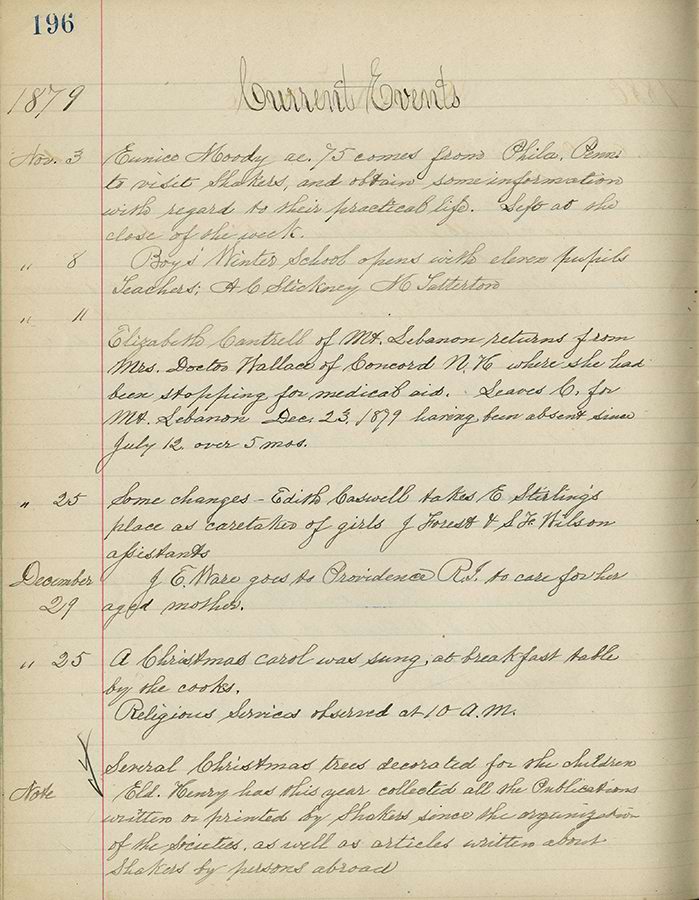 196
1879 Current Events
Nov. 3 Eunice Moody ae. 75 comes from Phila, Penn.
to visit Shakers, and obtain some information
with regard to their practical life. Left at the
close of the week.
" 8 Boys' Winter School opens with eleven pupils
Teachers; A C Stickney M Tatterton
" 11
Elizabeth Cantrell of Mt. Lebanon returns from
Mrs. Doctor Wallace of Concord N.H. where she had
been stopping for medical aid. Leaves C. for
Mt. Lebanon Dec. 23, 1879 having been absent since
July 12. over 5 mos.
" 25 Some changes - Edith Caswell takes E Stirling's
place as caretaker of girls J Forest & S F Wilson
assistants
December J. E. Ware goes to Providence R.I. to care for her
29 aged mother.
" 25 A Christmas carol was sung, at breakfast table
by the cooks.
Religious Services observed at 10 A.M.
Several Christmas trees decorated for the children
Note Eld. Henry has this year collected all the Publications
written or printed by Shakers since the organization
of the Societies, as well as articles written about
Shakers by persons abroad